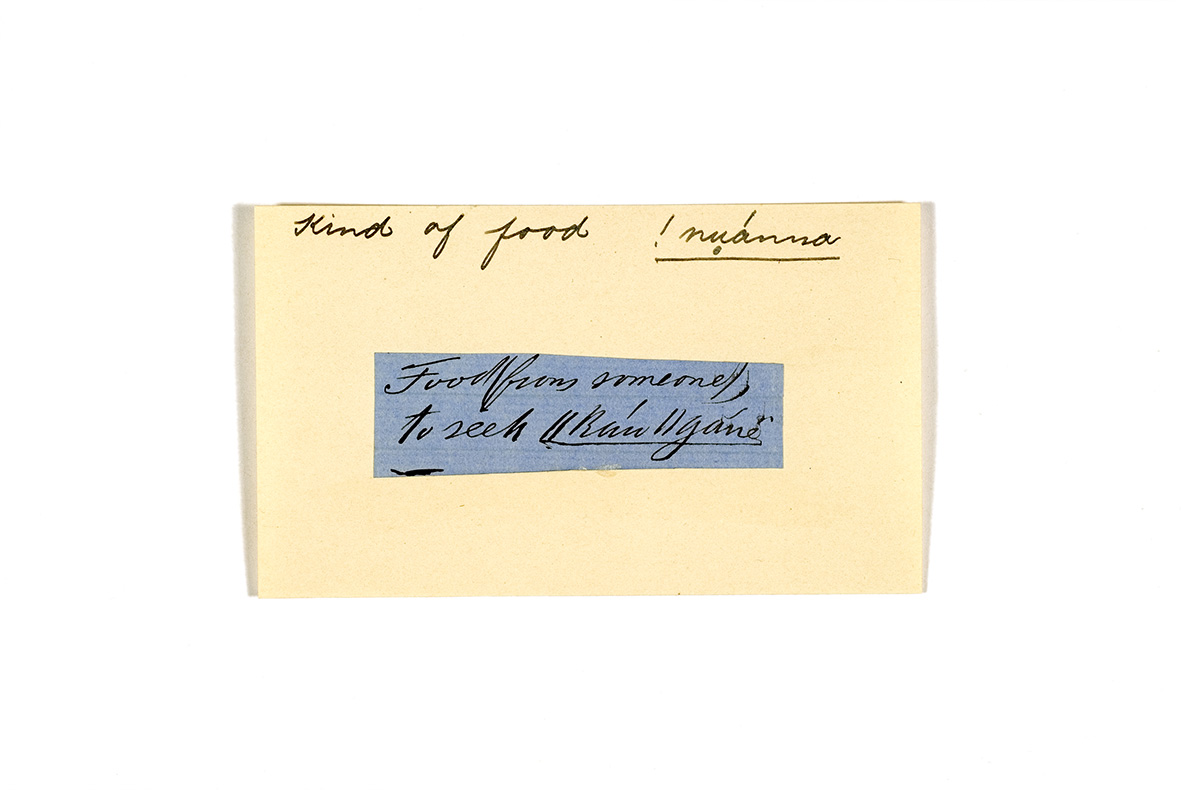 Kind of food ! nụánna
Food (from someone),
to seek ǁkúu ǁgánĕ